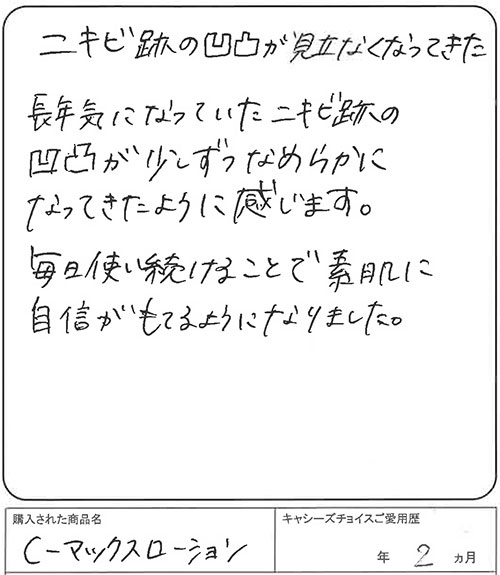 ニキビ跡の凹凸が見立なくなってきた
長年気になっていたニキビ跡の
凹凸が少しずつなめらかに
なってきたように感じます。
毎日使い続けることで素肌に
自信がもてるようになりました。
購入された商品名
キャシーズチョイスご愛用歴
C-マックスローション
年 2 カ月